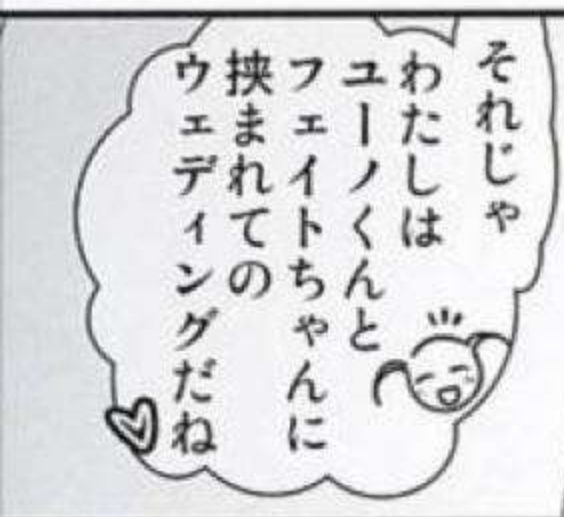 それじゃ
わたしは
ユーノくんと
フェイトちゃんに
挟まれての
ウェディングだね